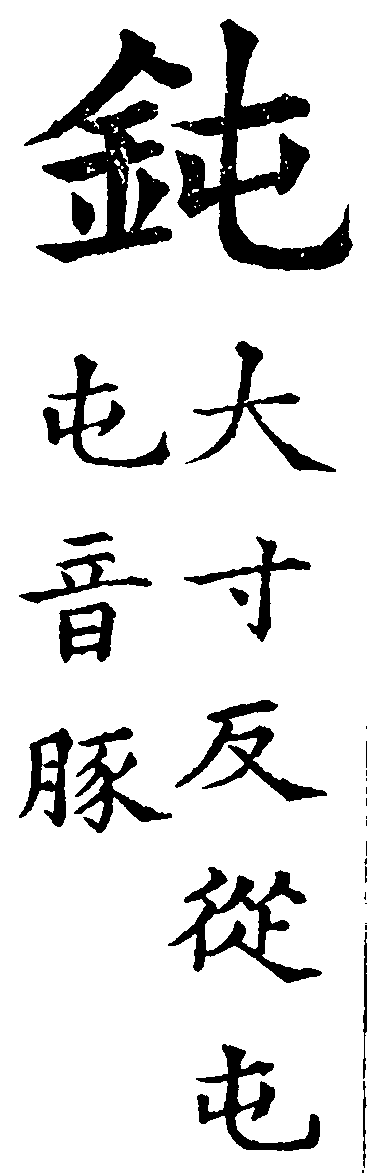 鈍
大寸反從屯
屯音豚